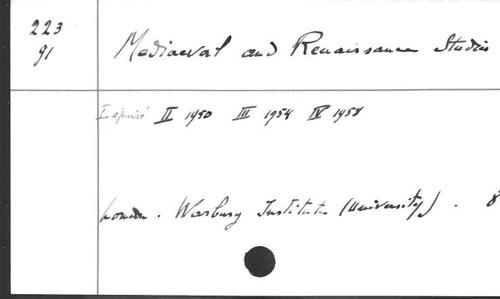 223
91
Mediaeval and Renaissance Studies
I épuisé II 1950 III 1954 IV 1958
London. Warburg Institute (University). 8